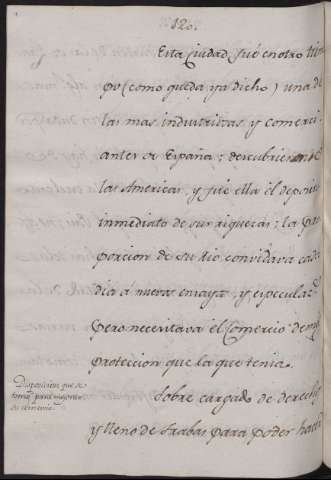 120.
Esta Ciudad fué en otro tiem
po (como queda ya dicho) una de
las mas industriosas y comerci
antes de España; descubrieronse
las Americas, y fue ella el deposito
inmediato de sus riquezas: la pro
porcion de su Rio convidava cada
dia á nuevos ensayos, y especulac.
pero necesitava el Comercio de mas
proteccion que la que tenia.
Disposicion que se
toma para mejorar
su comercio.
Sobre cargado de derechos
y lleno de trabas para poder hacer